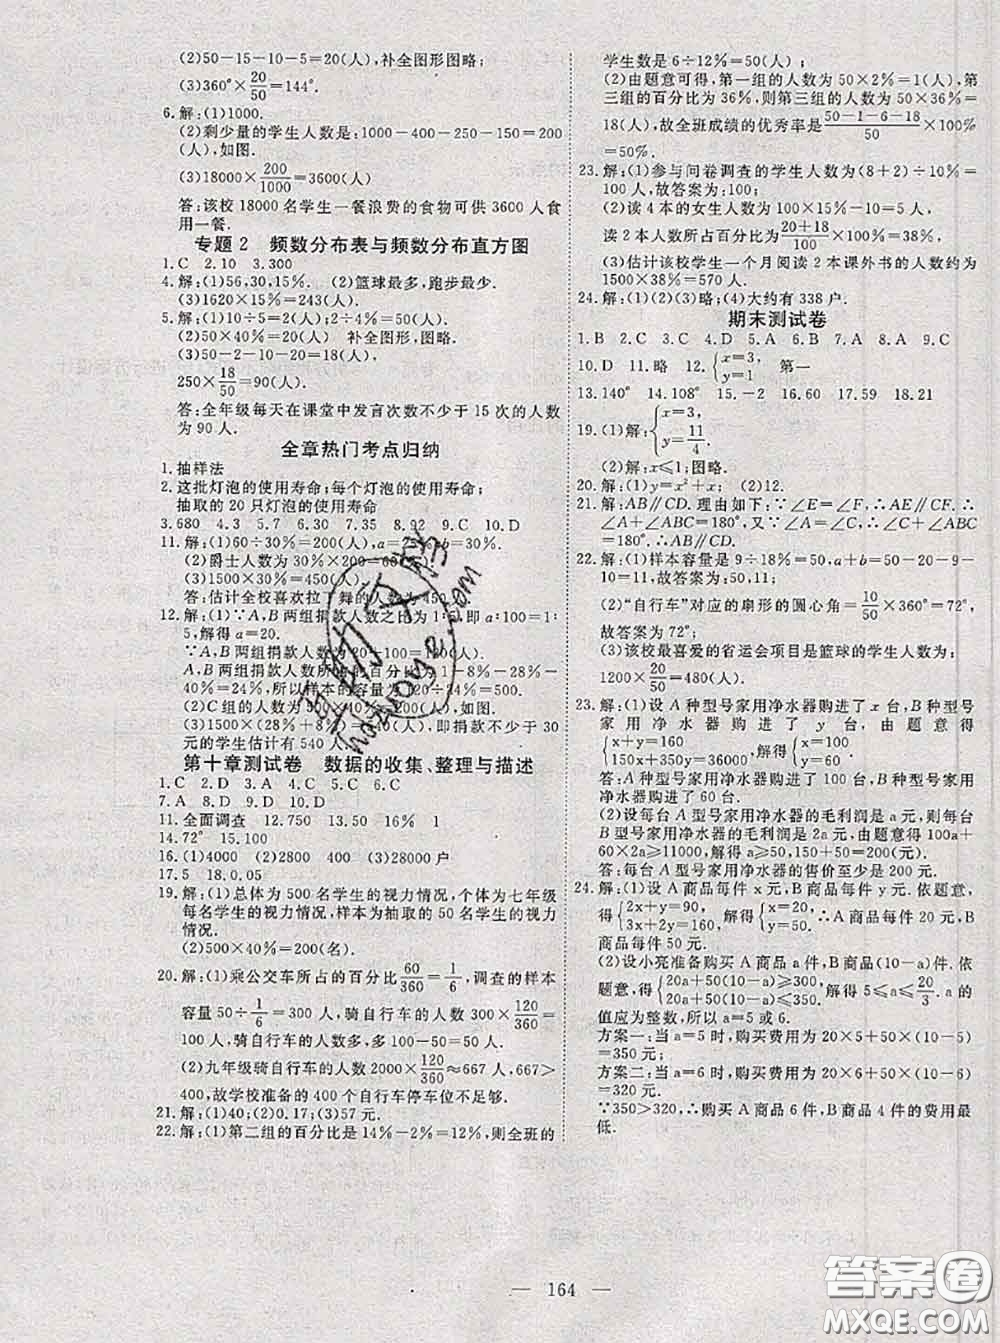 (2)50-15-10-5=20(人),补全图形图略;
(3)360°×20/50=144°.
6.解:(1)1000.
(2)剩少量的学生人数是:1000-400-250-150=200
(人),如图.
(3)18000×200/1000=3600(人)
答:该校 18000 名学生一餐浪费的食物可供 3600 人食
用一餐.
专题2 频数分布表与频数分布直方图
1.C 2.10 3.300
4.解:(1)56,30,15%. (2)篮球最多,跑步最少.
(3)1620×15%=243(人).
5.解:(1)10÷5=2;2÷4%=50(人).
(2)50×40%=20(人) 补全图形,图略.
(3)50-2-10-20=18(人).
250×18/50=90(人).
答:全年级每天在课堂中发言次数不少于 15 次的人数
为 90 人.
全章热门考点归纳
1.抽样法
2.这批灯泡的使用寿命;每个灯泡的使用寿命;
抽取的 20 只灯泡的使用寿命
3.680 4.3 5.7 6.30 7.35 8.92 9.C 10.D
11.解:(1)60÷30%=200(人),a=
=30%.
(2)爵士人数为 30%×200-
(3)1500×30%=450(人)
答:估计全校喜欢拉丁舞的人数为 450
12.解:(1)∵A,B两组捐款人数之比为 1:5,即 a:100=1:
5,解得 a=20.
∵A,B两组捐款人数为 20+100=120(人)
A,B两组捐款人数所占的百分比为 1-8%-28%-
40%=24%,所以样本的容量为 120÷24%=500.
(2)C 组的人数为 500×40%=200.
(3)1500×(28%+8%)=540(人),即捐款不少于 30
元的学生估计有 540 人.
第十章测试卷 数据的收集、整理与描述
1.C 2.D 3.A 4.C 5.C 6.C
7.A 8.D 9.D 10.D
11.全面调查 12.750 13.50 16% 1
14.72° 15.100
16.(1)4000 (2)2800 (3)28000 户
17.5 18.0.05
19.解:(1)总体为 500 名学生的视力情况,个体为七年级
每名学生的视力情况,样本为抽取的 50 名学生的视力
情况.
(2)500×40%=200(名).
20.解:(1)乘公交车所占的百分比60/360=1/6,调查的样本
容量50÷1/6=300 人,骑自行车的人数 300×120/360=
100 人,骑自行车的人数多,多 100-50=50 人.
(2)九年级骑自行车的人数 2000×120/360≈667人,667>
400,故学校准备的 400 个自行车停车位不足够.
21.解:(1)40;(2)0.17;(3)57 元.
22.解:(1)第二组的百分比是 14%-2%=12%,则全班的
学生数是 6÷12%=50(人);
(2)由题意可得,第一组的人数为 50×2%=1(人),第
三组的百分比为 36%,则第三组的人数为 50×36%=
18(人),故全班成绩的优秀率是(50-1-6-18)/50×100%
=50%.
23.解:(1)参与问卷调查的学生人数为(8+2)÷10%=
100 人,故答案为:100;
(2)读 4 本的女生人数为 100×15%-10=5 人,
读 2 本人数所占百分比为(20+18)/100×100%=38%,
(3)估计该校学生一个月阅读 2 本课外书的人数约为
1500×38%=570 人.
24.解:(1)(2)(3)略;(4)大约有 338 户.
期末测试卷
1.B 2.C 3.C 4.D 5.A 6.B 7.A 8.A 9.C
10.D 11.略 12.{x=3, y=1 第一
13.140° 14.108° 15.-2 16.60 17.59 18.21
19.(1)解:{x=3, y=11/4.
(2)解:x≤1;图略.
20.解:(1)y=x²+x;(2)12.
21.解:AB∥CD.理由如下:∵∠E=∠F,∴AE∥CF,∴
∠A+∠ABC=180°,又∵∠A=∠C,∴∠C+∠ABC
=180°.∴AB∥CD.
22.解:(1)样本容量是 9÷18%=50,a+b=50-20-9-
10=11,故答案为:50,11;
(2)“自行车”对应的扇形的圆心角=10/50×360°=72°,
故答案为 72°;
(3)该校最喜爱的省运会项目是篮球的学生人数为:
1200×20/50=480(人).
23.解:(1)设 A 种型号家用净水器购进了 x 台,B 种型号
家用净水器购进了 y 台,由题意得
{x+y=160, 150x+350y=36000, 解得{x=100, y=60.
答:A 种型号家用净水器购进了 100 台,B 种型号家用
净水器购进了 60 台.
(2)设每台 A 型号家用净水器的毛利润是 a 元,则每台
B 型号家用净水器的毛利润是 2a 元,由题意得 100a+
60×2a≥11000,解得 a≥50,150+50=200(元).
答:每台 A 型号家用净水器的售价至少是 200 元.
24.解:(1)设 A 商品每件 x 元,B 商品每件 y 元,依题意,得
{2x+y=90, 3x+2y=160, 解得{x=20, y=50.∴A 商品每件 20 元,B
商品每件 50 元.
(2)设小亮准备购买 A 商品 a 件,B 商品(10-a)件,依
题意,得{20a+50(10-a)≥300, 20a+50(10-a)≤350. 解得 5≤a≤20/3.a 的
值应为整数,所以 a=5 或 6.
方案一:当 a=5 时,购买费用为 20×5+50×(10-5)
=350 元;
方案二:当 a=6 时,购买费用为 20×6+50×(10-6)
=320 元.
∵350>320,∴购买 A 商品 6 件,B 商品 4 件的费用最
低.
— 164 —
答案圈
MXQE.COM